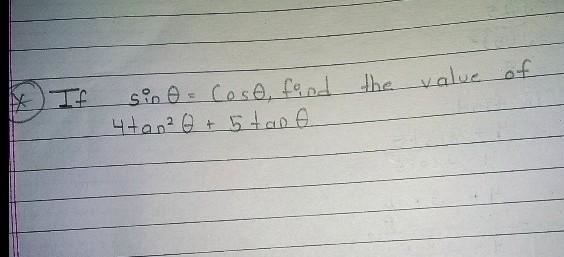 * If sinθ = Cosθ, find the value of
4tan²θ + 5tanθ